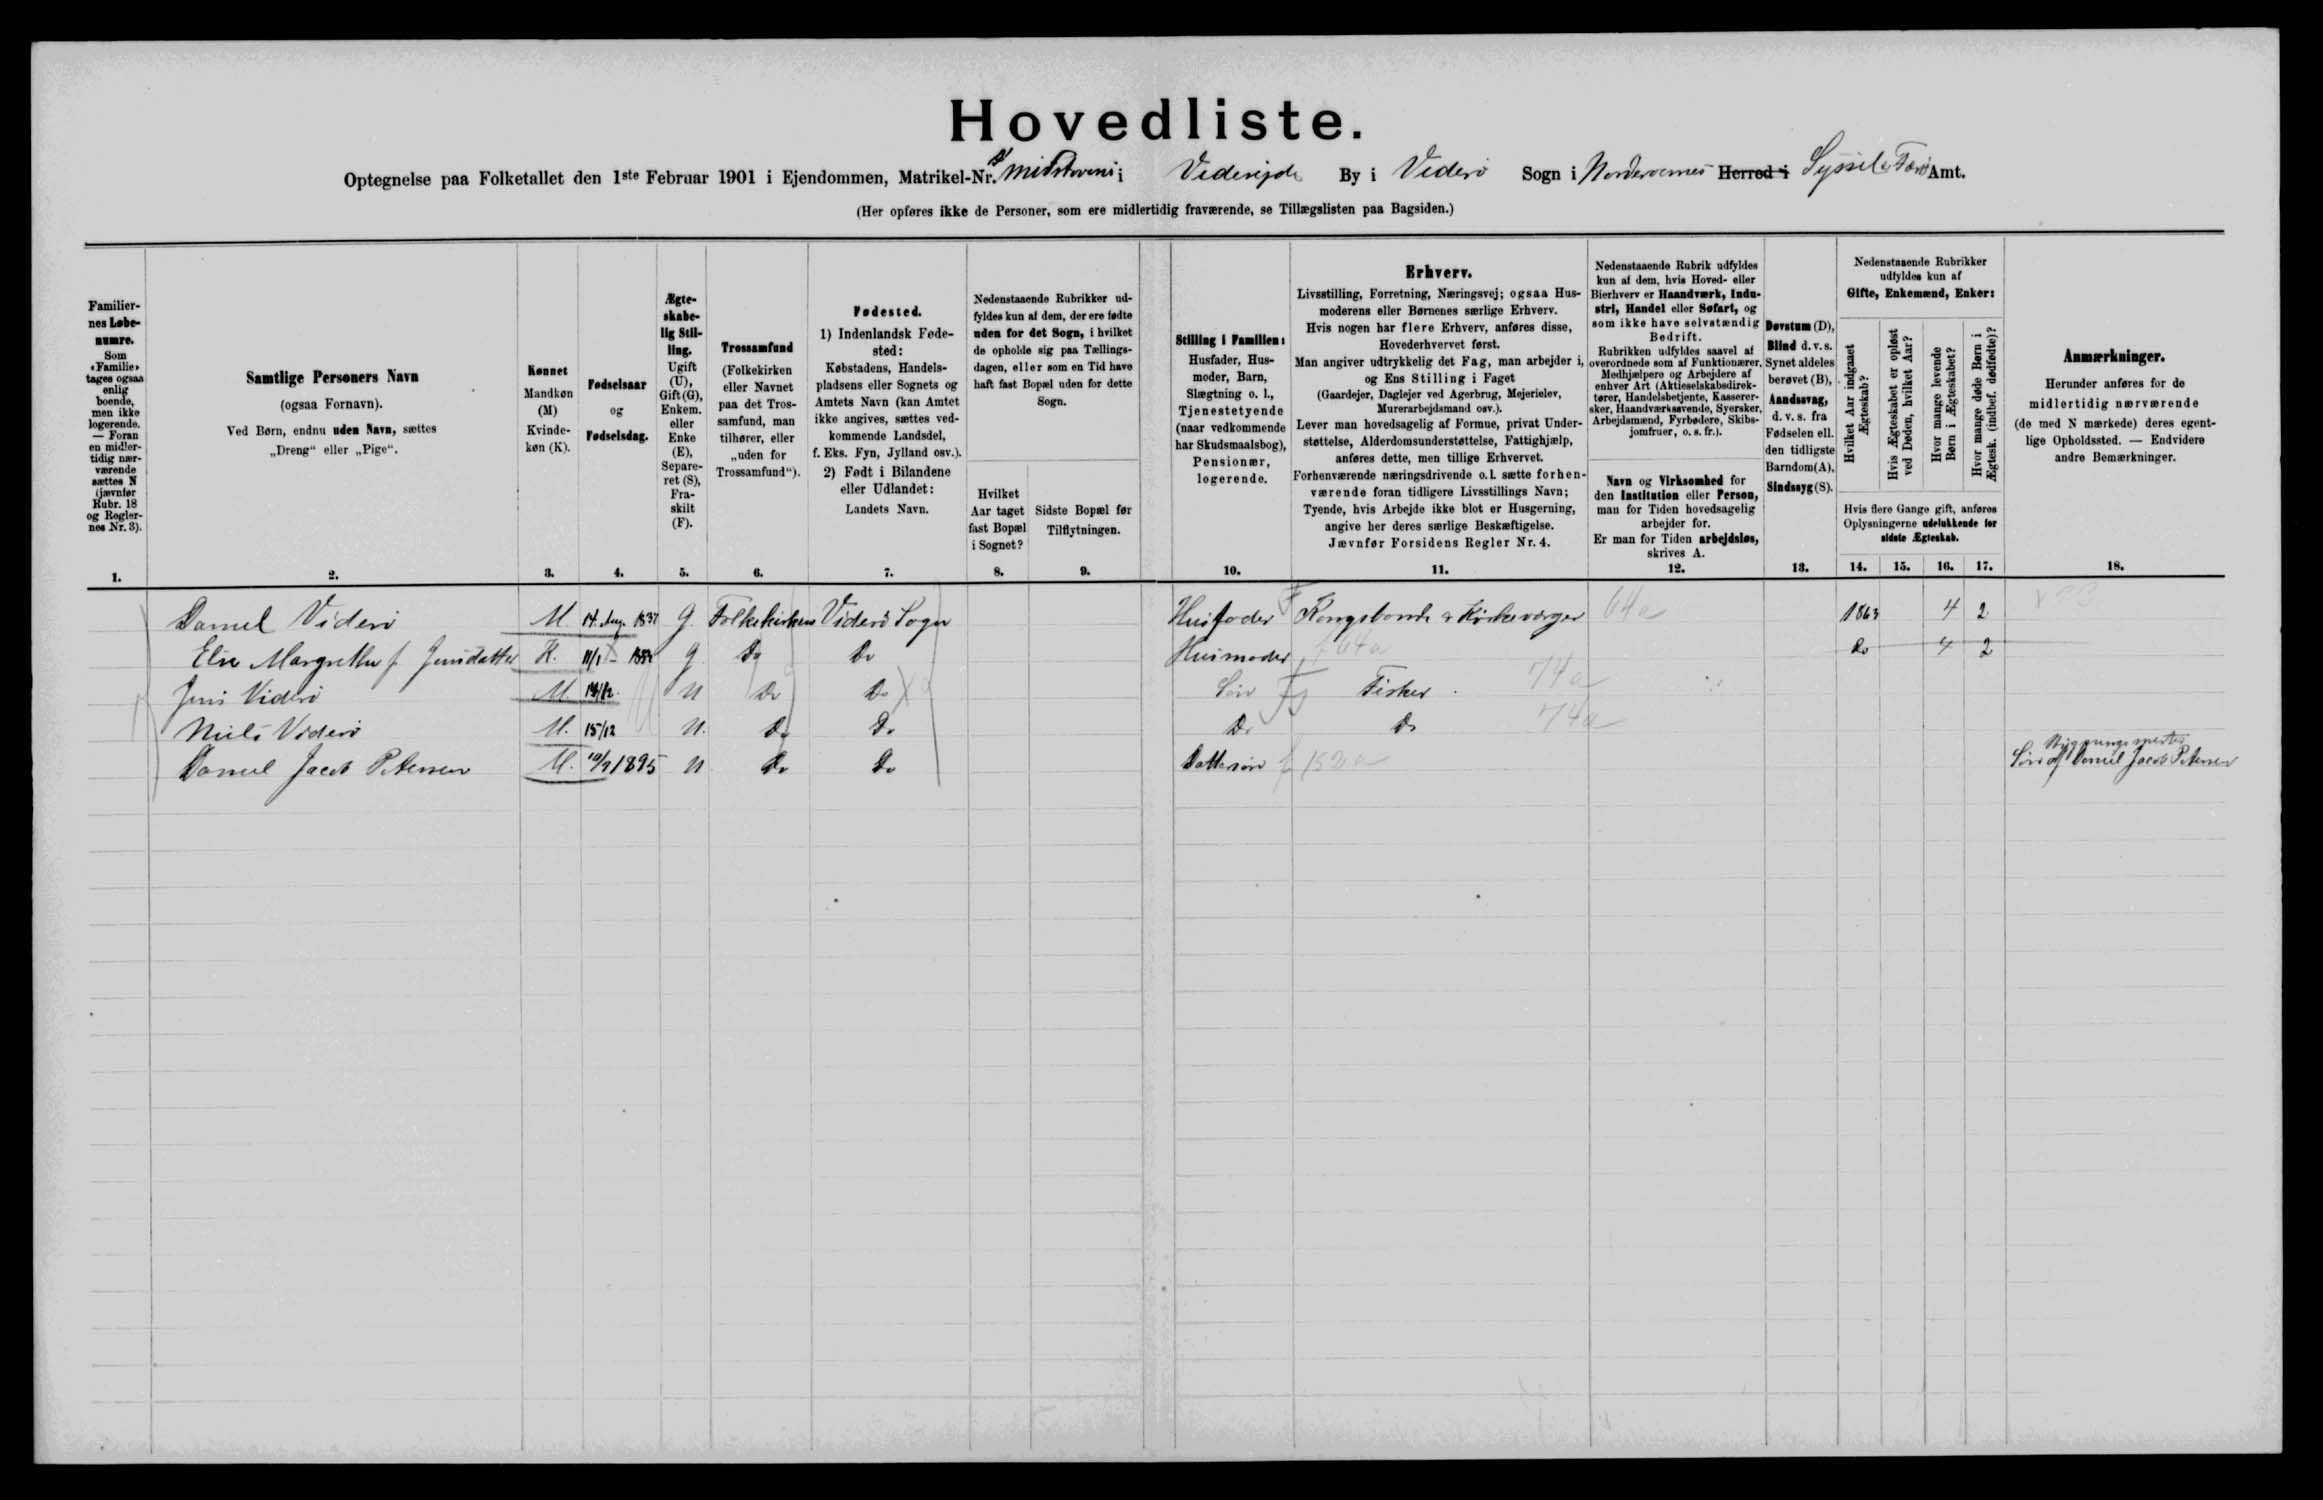 Hovedliste.
Optegnelse paa Folketallet den 1ste Februar 1901 i Ejendommen, Matrikel-Nr. i Viderejde By i Viderö Sogn i Norderoernes Herred i Syssel Færö Amt.
(Her opføres ikke de Personer, som ere midlertidig fraværende, se Tillægslisten paa Bagsiden.)
Familiernes Løbenumre.
Som «Familie» tages ogsaa enlig boende, men ikke logerende. — Foran en midlertidig nærværende sættes N (jævnfør Rubr. 18 og Reglernes Nr. 3).
1.
Samtlige Personers Navn
(ogsaa Fornavn).
Ved Børn, endnu uden Navn, sættes
„Dreng“ eller „Pige“.
2.
Kønnet
Mandkøn
(M)
Kvindekøn (K).
3.
Fødselsaar
og
Fødselsdag.
4.
Ægteskabelig Stilling.
Ugift (U), Gift (G), Enkem. eller Enke (E), Separeret (S), Fraskilt (F).
5.
Trossamfund
(Folkekirken eller Navnet paa det Trossamfund, man tilhører, eller „uden for Trossamfund“).
6.
Fødested.
1) Indenlandsk Fødested:
Købstadens, Handelspladsens eller Sognets og Amtets Navn (kan Amtet ikke angives, sættes vedkommende Landsdel, f. Eks. Fyn, Jylland osv.).
2) Født i Bilandene eller Udlandet:
Landets Navn.
7.
Nedenstaaende Rubrikker udfyldes kun af dem, der ere fødte uden for det Sogn, i hvilket de opholde sig paa Tællingsdagen, eller som en Tid have haft fast Bopæl uden for dette Sogn.
Hvilket Aar taget fast Bopæl i Sognet?
8.
Sidste Bopæl før Tilflytningen.
9.
Stilling i Familien:
Husfader, Husmoder, Barn, Slægtning o. l., Tjenestetyende (naar vedkommende har Skudsmaalsbog), Pensionær, logerende.
10.
Erhverv.
Livsstilling, Forretning, Næringsvej; ogsaa Husmoderens eller Børnenes særlige Erhverv.
Hvis nogen har flere Erhverv, anføres disse, Hovederhvervet først.
Man angiver udtrykkelig det Fag, man arbejder i, og Ens Stilling i Faget
(Gaardejer, Daglejer ved Agerbrug, Mejerielev, Murerarbejdsmand osv.).
Lever man hovedsagelig af Formue, privat Understøttelse, Alderdomsunderstøttelse, Fattighjælp, anføres dette, men tillige Erhvervet.
Forhenværende næringsdrivende o. l. sætte forhenværende foran tidligere Livsstillings Navn;
Tyende, hvis Arbejde ikke blot er Husgerning, angive her deres særlige Beskæftigelse.
Jævnfør Forsidens Regler Nr. 4.
11.
Nedenstaaende Rubrik udfyldes kun af dem, hvis Hoved- eller Bierhverv er Haandværk, Industri, Handel eller Søfart, og som ikke have selvstændig Bedrift.
Rubrikken udfyldes saavel af overordnede som af Funktionærer, Medhjælpere og Arbejdere af enhver Art (Aktieselskabsdirektører, Handelsbetjente, Kasserersker, Haandværkssvende, Syersker, Arbejdsmænd, Fyrbødere, Skibsjomfruer, o. s. fr.).
Navn og Virksomhed for den Institution eller Person, man for Tiden hovedsagelig arbejder for.
Er man for Tiden arbejdsløs, skrives A.
12.
Døvstum (D), Blind d. v. s. Synet aldeles berøvet (B), Aandssvag, d. v. s. fra Fødselen ell. den tidligste Barndom (A), Sindssyg (S).
13.
Nedenstaaende Rubrikker udfyldes kun af
Gifte, Enkemænd, Enker:
Hvilket Aar indgaaet Ægteskab?
Hvis Ægteskabet er opløst ved Døden, hvilket Aar?
Hvor mange levende Børn i Ægteskabet?
Hvor mange døde Børn i Ægtesk. (indbef. dødfødte)?
Hvis flere Gange gift, anføres Oplysningerne udelukkende for sidste Ægteskab.
14. 15. 16. 17.
Anmærkninger.
Herunder anføres for de midlertidig nærværende (de med N mærkede) deres egentlige Opholdssted. — Endvidere andre Bemærkninger.
18.
Daniel Viderö M. 14. Aug. 1837 G. Folkekirken Viderö Sogn Husfader Kongsbonde & Kirkeværger 64a 1863 4 2
Else Margrethe f. Jensdatter K. 11/1 G Do Do Husmoder f 64a Do 4 2
Jens Viderö M. U Do Do Sön Fisker. 74a
Niels Viderö M. 15/12 U. Do Do Do Do 74a
Daniel Jacob Petersen M. 10/9 1895 U Do Do Dattersön f 152a Sön af Bygningsmester Daniel Jacob Petersen